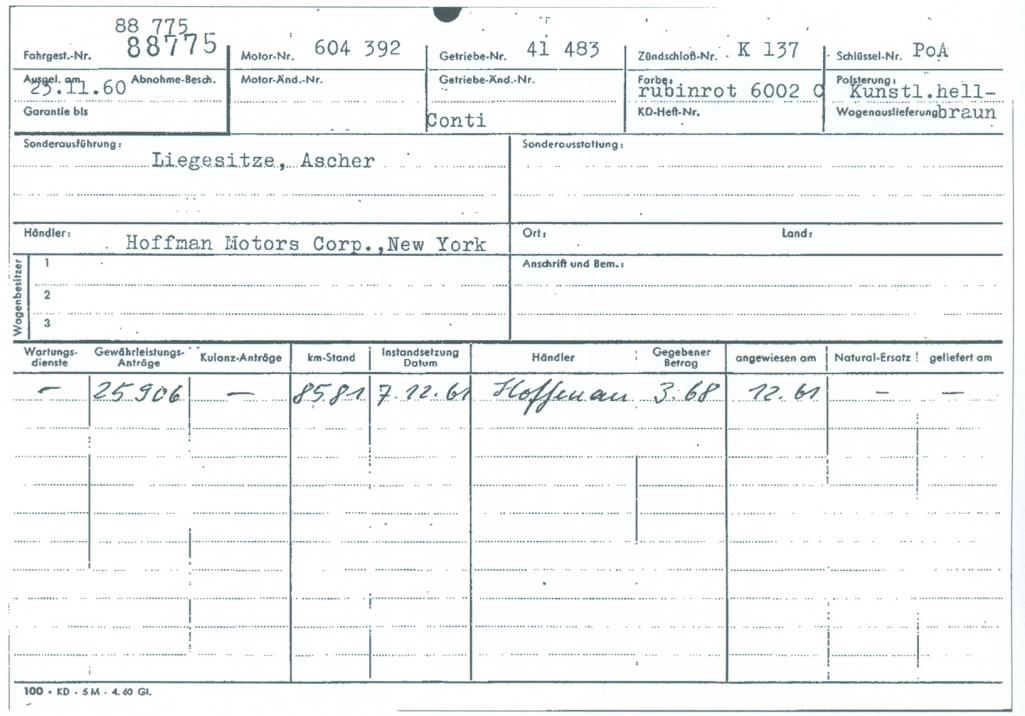 88 775
Fahrgest.-Nr. 88775 Motor-Nr. 604 392 Getriebe-Nr. 41 483 Zündschloß-Nr. K 137 Schlüssel-Nr. PoA
Ausgel. am Abnahme-Besch. Motor-Änd.-Nr. Getriebe-Änd.-Nr. Farbe: Polsterung:
25.11.60 rubinrot 6002 C Kunstl.hell-
Garantie bis Conti KD-Heft-Nr. Wagenauslieferung braun
Sonderausführung: Sonderausstattung:
Liegesitze, Ascher
Händler: Hoffman Motors Corp.,New York Ort: Land:
Wagenbesitzer
1 Anschrift und Bem.:
2
3
Wartungs-dienste Gewährleistungs-Anträge Kulanz-Anträge km-Stand Instandsetzung Datum Händler Gegebener Betrag angewiesen am Natural-Ersatz geliefert am
— 25906 — 8581 7.12.61 Hoffman 3.68 12.61 — —
100 • KD - 5 M - 4. 60 Gl.